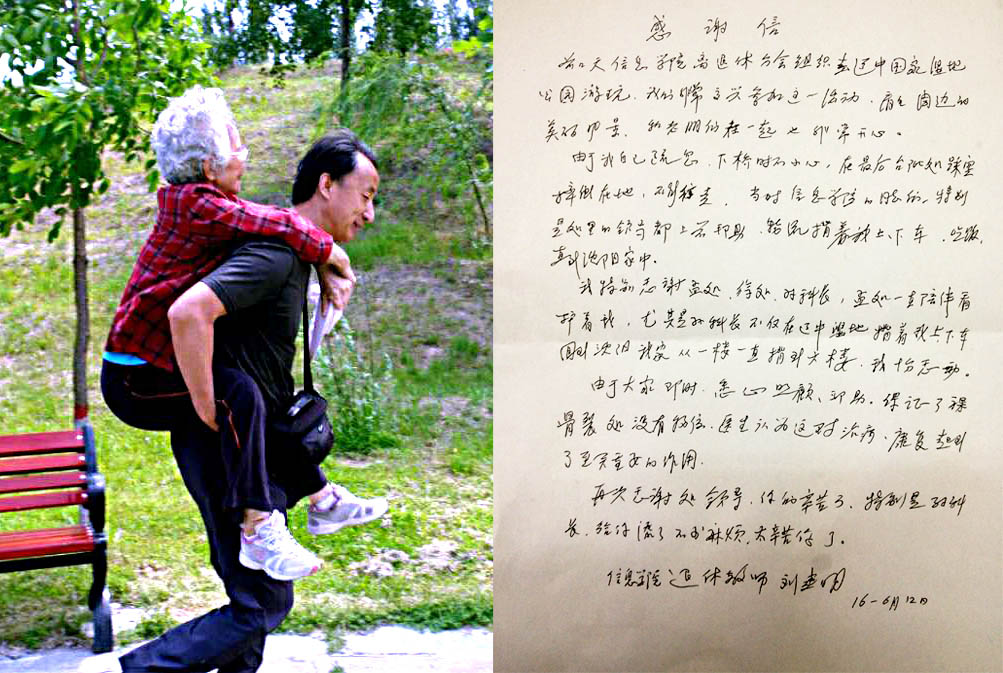 感谢信
前天信息学院离退休分会组织去辽中国家湿地
公园游玩,我们非常高兴参加这一活动,看了周边的
美好风景,和老朋们在一起也非常开心。
由于我自己疏忽,下桥时不小心,在最后台阶处踩空
摔倒在地,不能行走,当时信息学院的同志们,特别
是处里的领导都上前帮助,轮流揹着我上下车,吃饭,
直到沈阳家中。
我特别感谢孟处、徐处、孙科长,孟处一直陪伴看
护着我,尤其是孙科长不仅在辽中湿地揹着我上下车
回到沈阳我家从一楼一直揹到六楼,我十分感动。
由于大家及时、悉心照顾、帮助,保证了踝
骨裂处没有移位,医生认为这对治疗、康复起到
了至关重要的作用。
再次感谢处领导,你们辛苦了,特别是孙科
长,给你添了不少麻烦,太辛苦您了。
信息学院退休教师 刘
16-6月12日